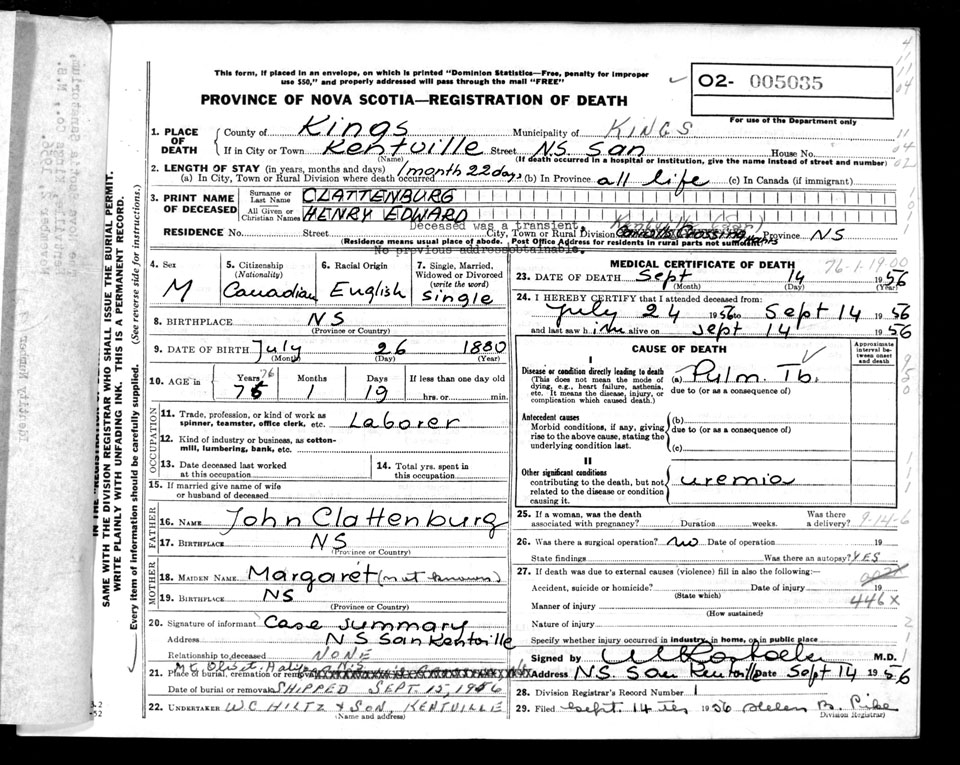 This form, if placed in an envelope, on which is printed "Dominion Statistics—Free, penalty for improper
use $50," and properly addressed will pass through the mail "FREE"
O2- 005035
For use of the Department only
PROVINCE OF NOVA SCOTIA—REGISTRATION OF DEATH
1. PLACE OF DEATH
County of Kings Municipality of KINGS
If in City or Town Kentville Street N.S. San House No.
(Name) (If death occurred in a hospital or institution, give the name instead of street and number)
2. LENGTH OF STAY (in years, months and days) 1 month 22 days
(a) In City, Town or Rural Division where death occurred (b) In Province all life (c) In Canada (if immigrant)
3. PRINT NAME OF DECEASED
Surname or Last Name CLATTENBURG
All Given or Christian Names HENRY EDWARD
Deceased was a transient.
RESIDENCE No. Street City, Town or Rural Division Province NS
(Residence means usual place of abode. Post Office Address for residents in rural parts not sufficient)
No previous address obtainable.
4. Sex M
5. Citizenship (Nationality) Canadian
6. Racial Origin English
7. Single, Married, Widowed or Divorced (write the word) Single
8. BIRTHPLACE NS
(Province or Country)
9. DATE OF BIRTH July 26 1880
(Month) (Day) (Year)
10. AGE in Years 76 75 Months 1 Days 19 If less than one day old hrs. or min.
OCCUPATION
11. Trade, profession, or kind of work as spinner, teamster, office clerk, etc. Laborer
12. Kind of industry or business, as cotton-mill, lumbering, bank, etc.
13. Date deceased last worked at this occupation
14. Total yrs. spent in this occupation
15. If married give name of wife or husband of deceased
FATHER
16. NAME John Clattenburg
17. BIRTHPLACE NS
(Province or Country)
MOTHER
18. MAIDEN NAME Margaret (not known)
19. BIRTHPLACE NS
(Province or Country)
20. Signature of informant Case summary
Address N S San Kentville
Relationship to deceased NONE
21. Place of burial, cremation or removal Mt. Olivet
Date of burial or removal SHIPPED SEPT 15, 1956
22. UNDERTAKER W.C. HILTZ & SON, KENTVILLE
(Name and address)
MEDICAL CERTIFICATE OF DEATH 76-1-19-00
23. DATE OF DEATH Sept 14 1956
(Month) (Day) (Year)
24. I HEREBY CERTIFY that I attended deceased from:
July 24 1956 to Sept 14 1956
and last saw him alive on Sept 14 1956
CAUSE OF DEATH
Approximate interval between onset and death
I
Disease or condition directly leading to death
(This does not mean the mode of dying, e.g., heart failure, asthenia, etc. It means the disease, injury, or complication which caused death.)
(a) Pulm. Tb.
due to (or as a consequence of)
Antecedent causes
Morbid conditions, if any, giving rise to the above cause, stating the underlying condition last.
(b)
due to (or as a consequence of)
(c)
II
Other significant conditions
contributing to the death, but not related to the disease or condition causing it.
uremia
25. If a woman, was the death associated with pregnancy? Duration weeks. Was there a delivery? 9-14-6
26. Was there a surgical operation? no Date of operation 19
State findings Was there an autopsy? YES
27. If death was due to external causes (violence) fill in also the following:—
Accident, suicide or homicide? Date of injury 19
(State which)
446X
Manner of injury
(How sustained)
Nature of injury
Specify whether injury occurred in industry, in home, or in public place
Signed by M.D.
Address N.S. San Kentville Date Sept 14 1956
28. Division Registrar's Record Number 1
29. Filed Sept. 14 1956 Helen B. Pike
Division Registrar)
SAME WITH THE DIVISION REGISTRAR WHO SHALL ISSUE THE BURIAL PERMIT.
WRITE PLAINLY WITH UNFADING INK. THIS IS A PERMANENT RECORD.
Every item of information should be carefully supplied. (See reverse side for instructions.)